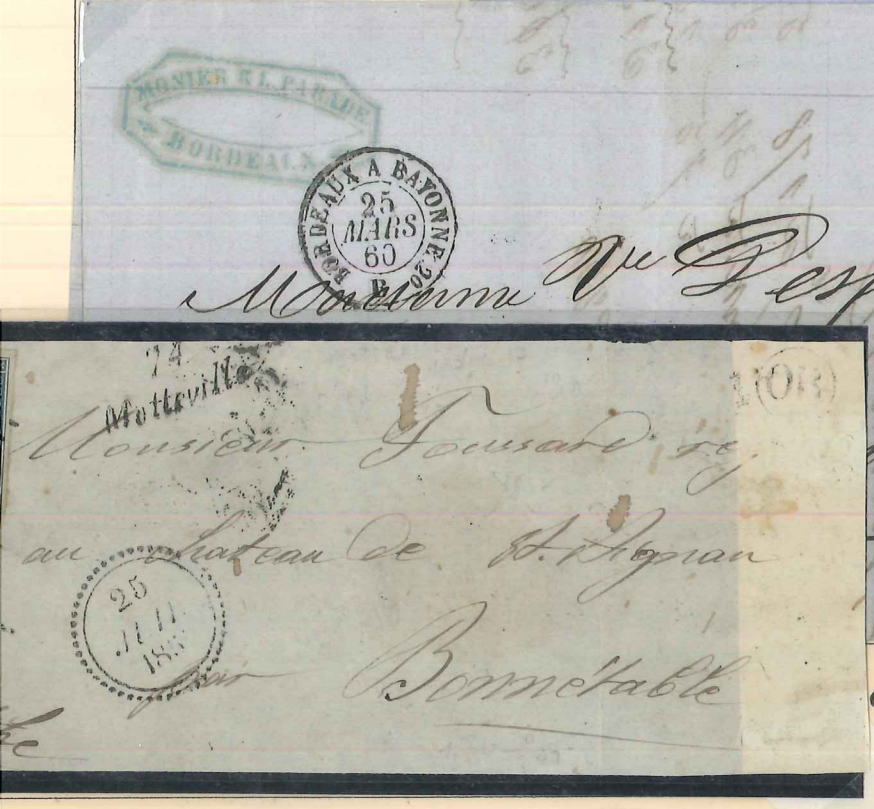 MONIER & L. PARADE
BORDEAUX
BORDEAUX A BAYONNE 20
25
MARS
60
B
Madame Vve Desp
74
Motteville
(OR)
Monsieur Foussard rég
au chateau de St. Aignan
25
JUIL
185
par Bonnétable
he